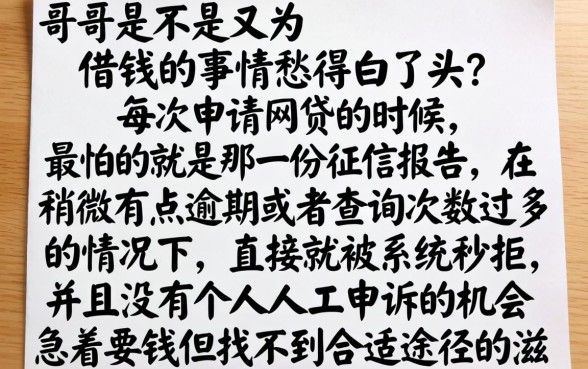 哥哥是不是又为
借钱的事情愁得白了头？
每次申请网贷的时候，
最怕的就是那一份征信报告，在
稍微有点逾期或者查询次数过多
的情况下，直接就被系统秒拒，
并且没有个人人工申诉的机会
急着要钱但找不到合适途径的滋